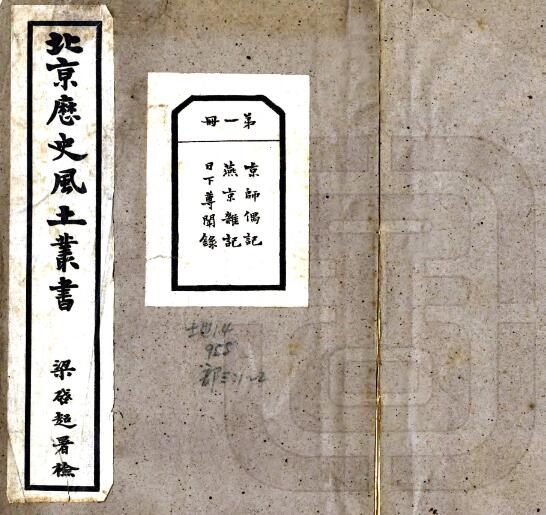 北京歷史風土叢書
梁啓超署檢
第一冊
京師偶記
燕京雜記
日下尊聞錄
955